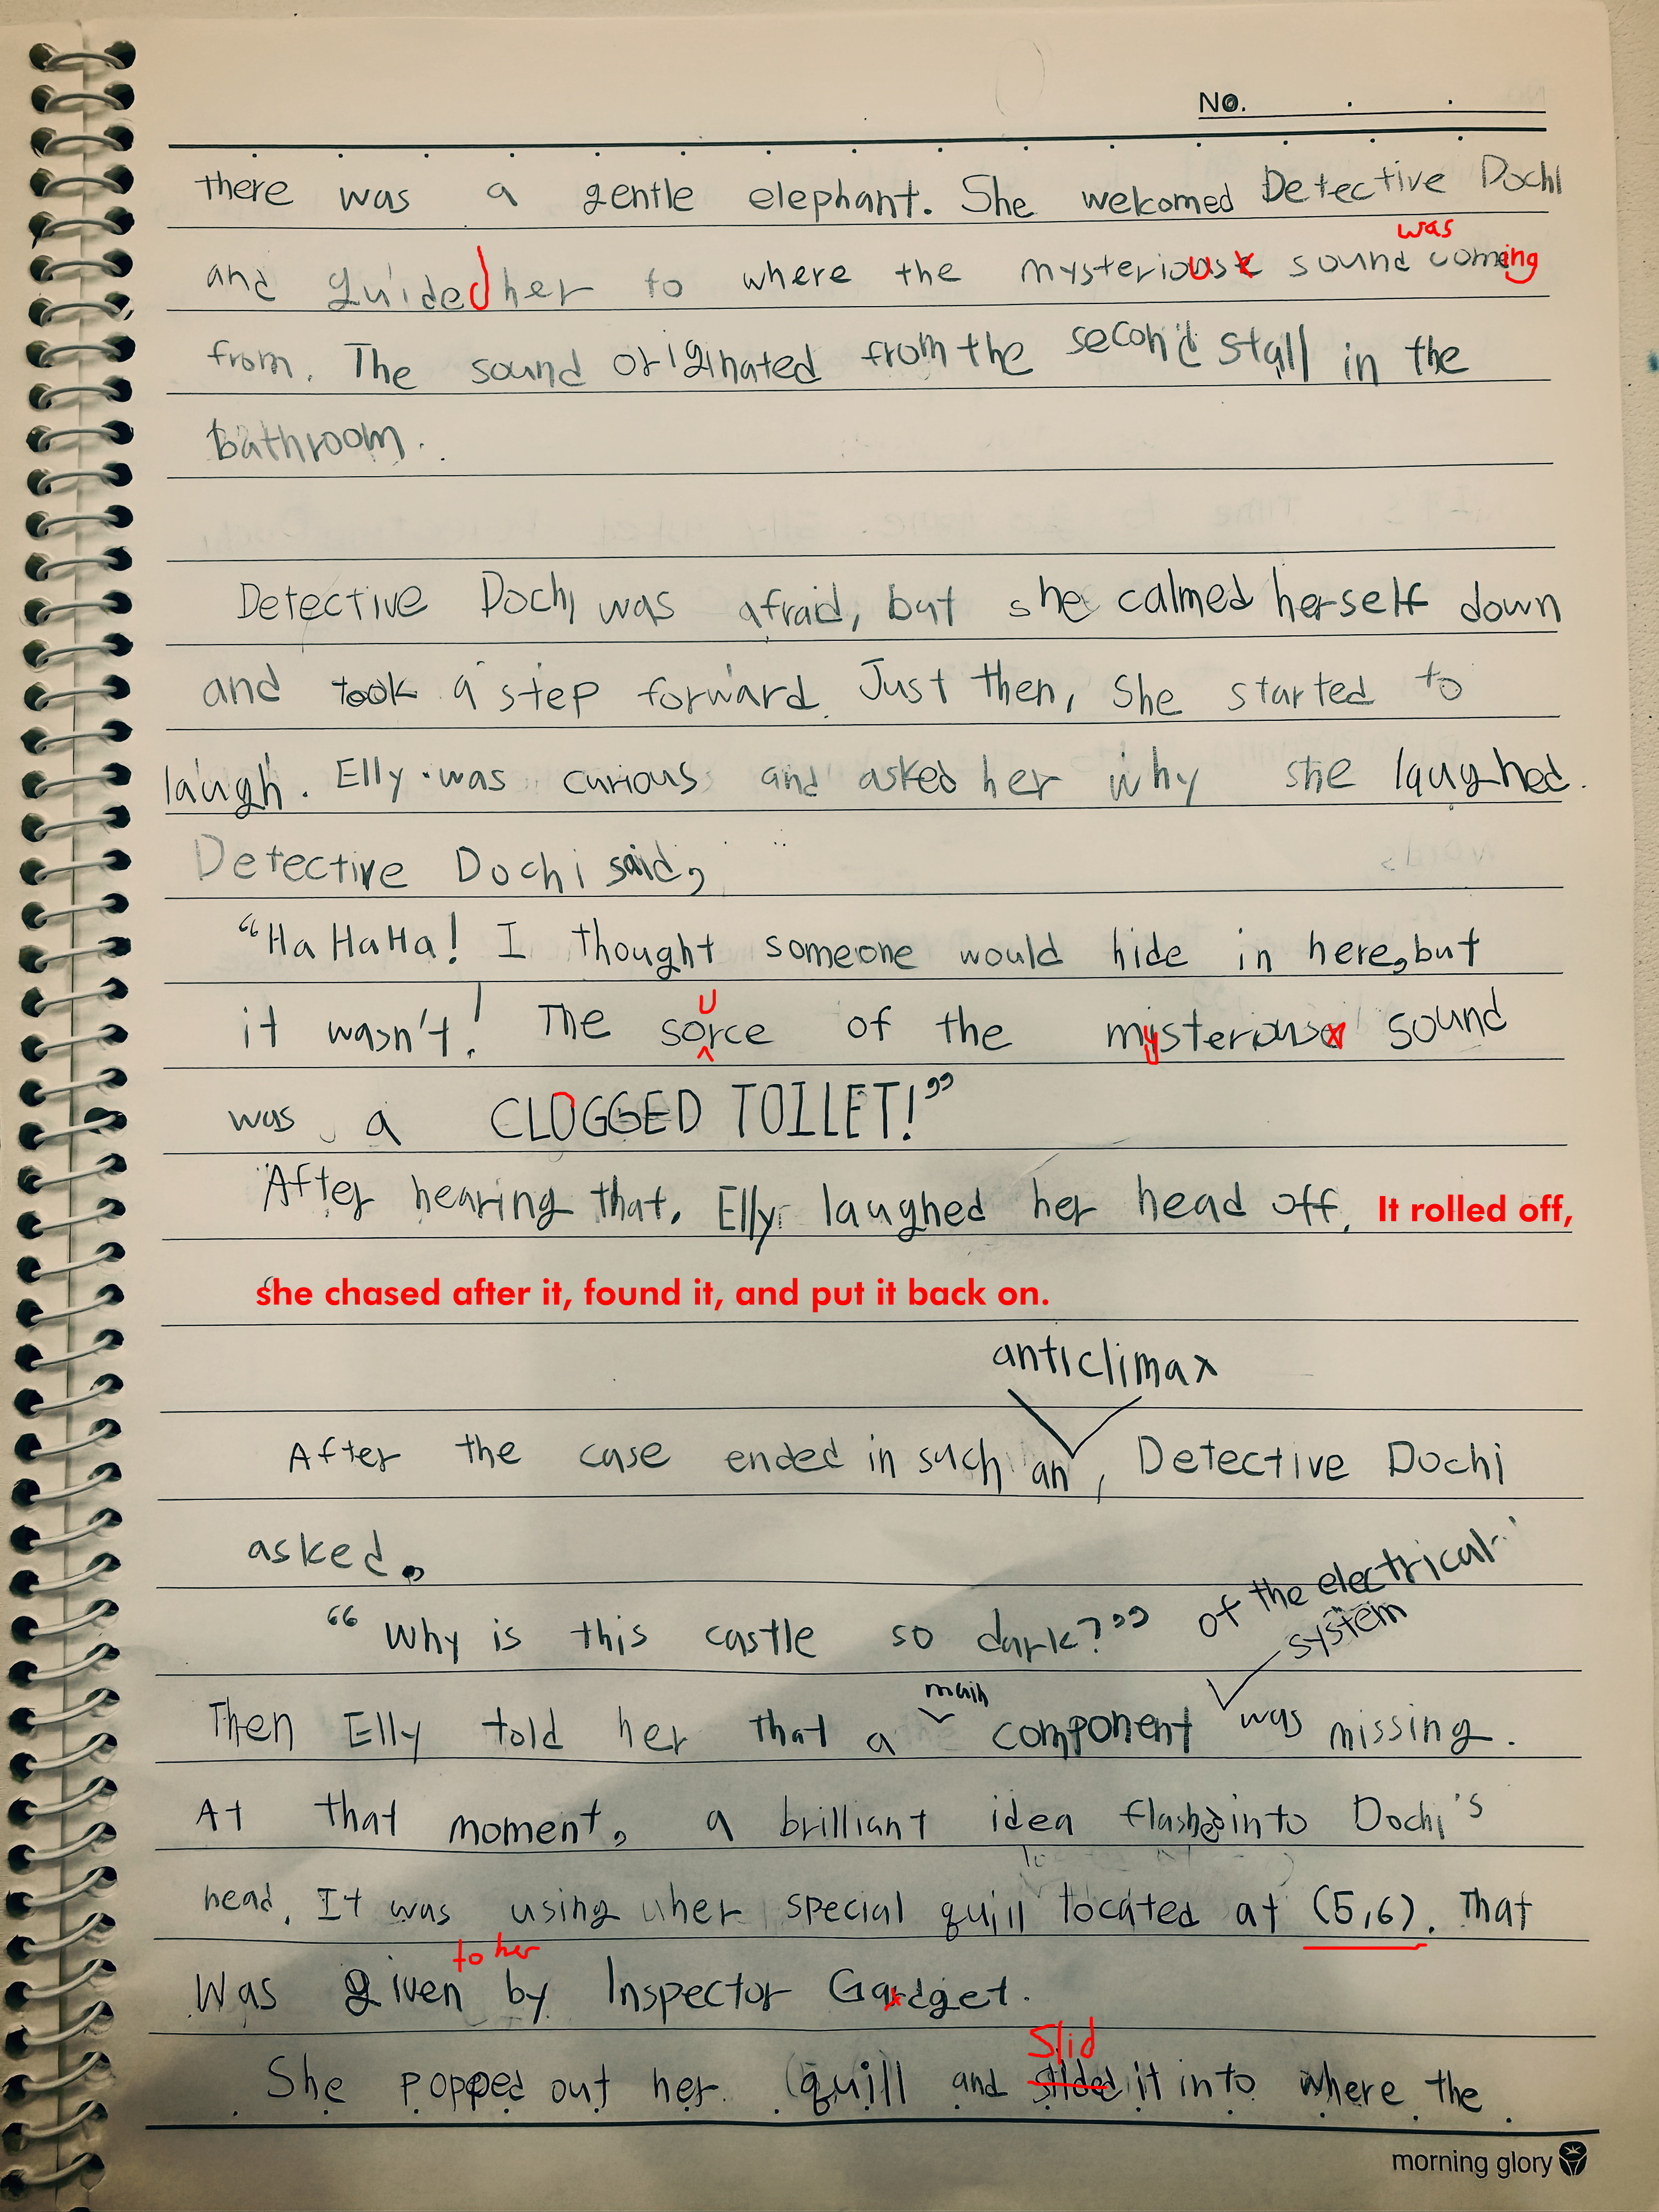 No.
there was a gentle elephant. She welcomed Detective Dochi
was
and guided her to where the mysterious sound coming
from. The sound originated from the second stall in the
bathroom.
Detective Dochi was afraid, but she calmed herself down
and took a step forward. Just then, She started to
laugh. Elly was curious and asked her why she laughed.
Detective Dochi said,
“Ha HaHa! I thought someone would hide in here, but
it wasn't! The sorce of the mysterious sound
u
was a CLOGGED TOILET!”
After hearing that, Elly laughed her head off. It rolled off,
she chased after it, found it, and put it back on.
anticlimax
After the case ended in such an, Detective Dochi
asked,
“Why is this castle so dark?” of the electrical
system
main
Then Elly told her that a component was missing.
At that moment, a brilliant idea flashed into Dochi's
head. It was using her special quill located at (5,6). That
to her
Was given by Inspector Gadget.
Slid
She popped out her quill and slided it into where the
morning glory